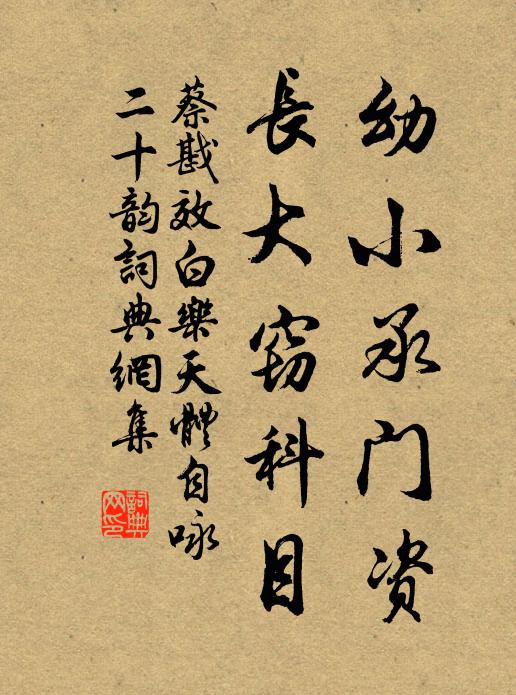 幼小承门资
長大窃科目
蔡戡效白樂天體自咏
二十韵詞典網集
詞典
网印